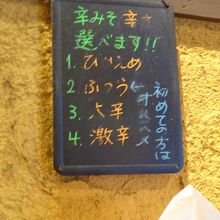 辛みそ辛さ
選べます!!
1. びかえめ
2. ふつう
3. 大辛
4. 激辛
初めての方は
オススメ